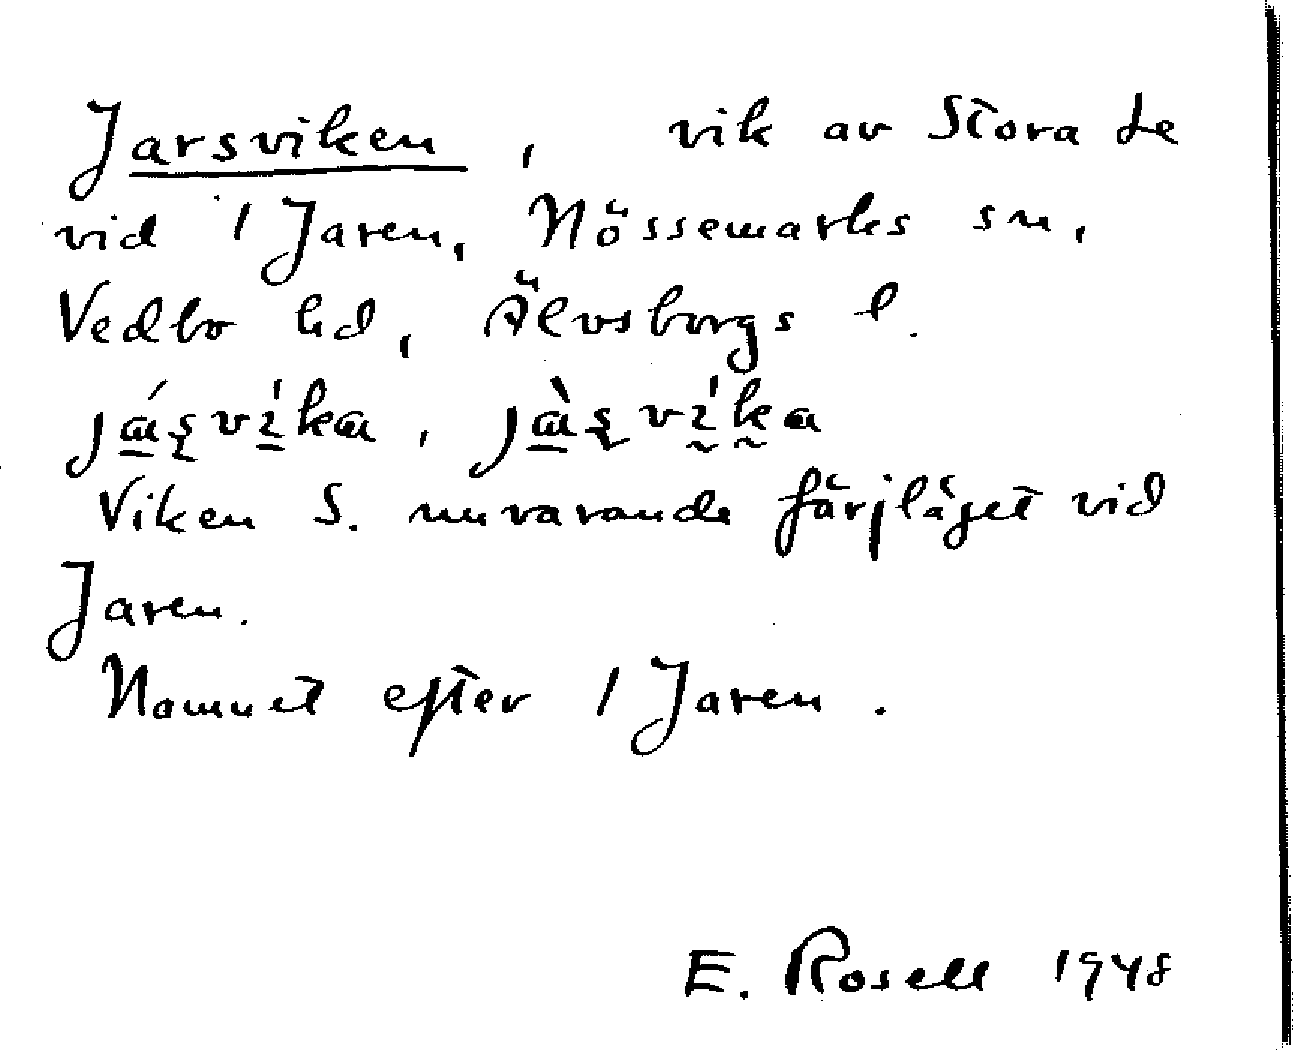 Jarsviken, vik av Stora Le
vid 1 Jaren, Nössemarks sn,
Vedbo hd, Älvsborgs l.
Viken S. nuvarande färjläget vid
Jaren.
Namnet efter 1 Jaren.
E. Rosell 1948